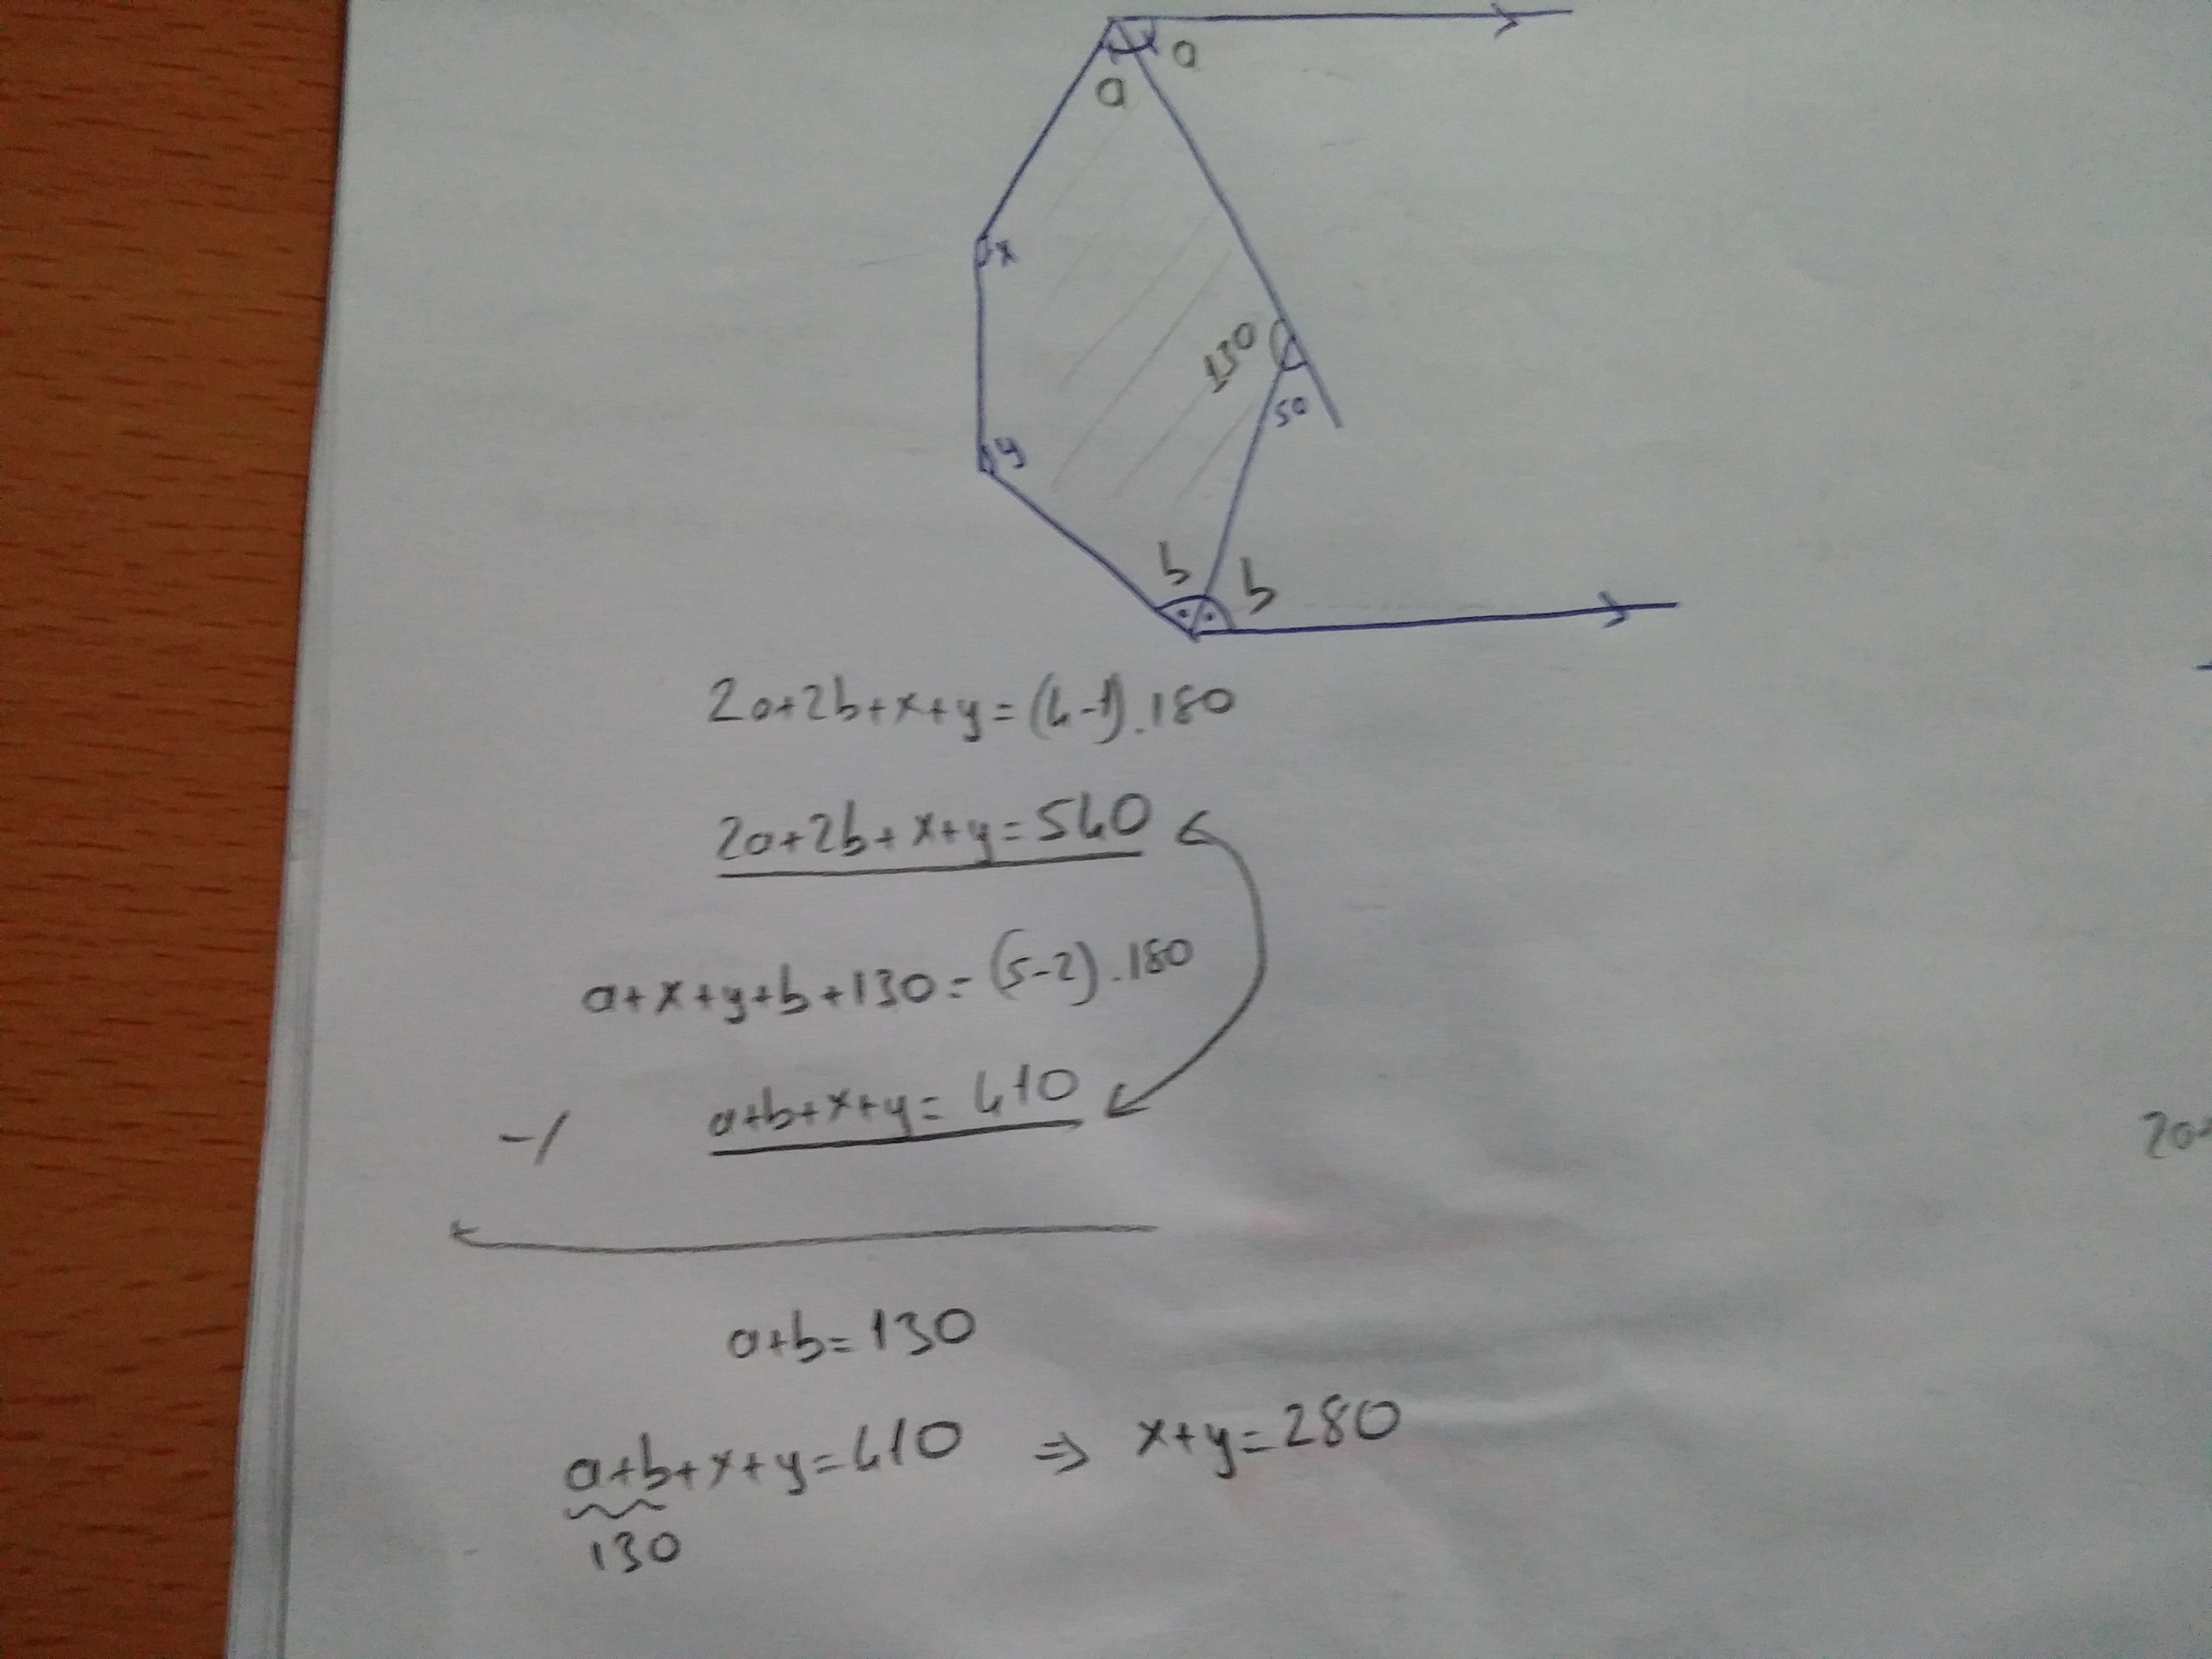 a
a
x
130
50
y
b b
2a+2b+x+y=(4-1).180
2a+2b+x+y=540
a+x+y+b+130=(5-2).180
-/ a+b+x+y=410
20
a+b=130
a+b+x+y=410 ⇒ x+y=280
130